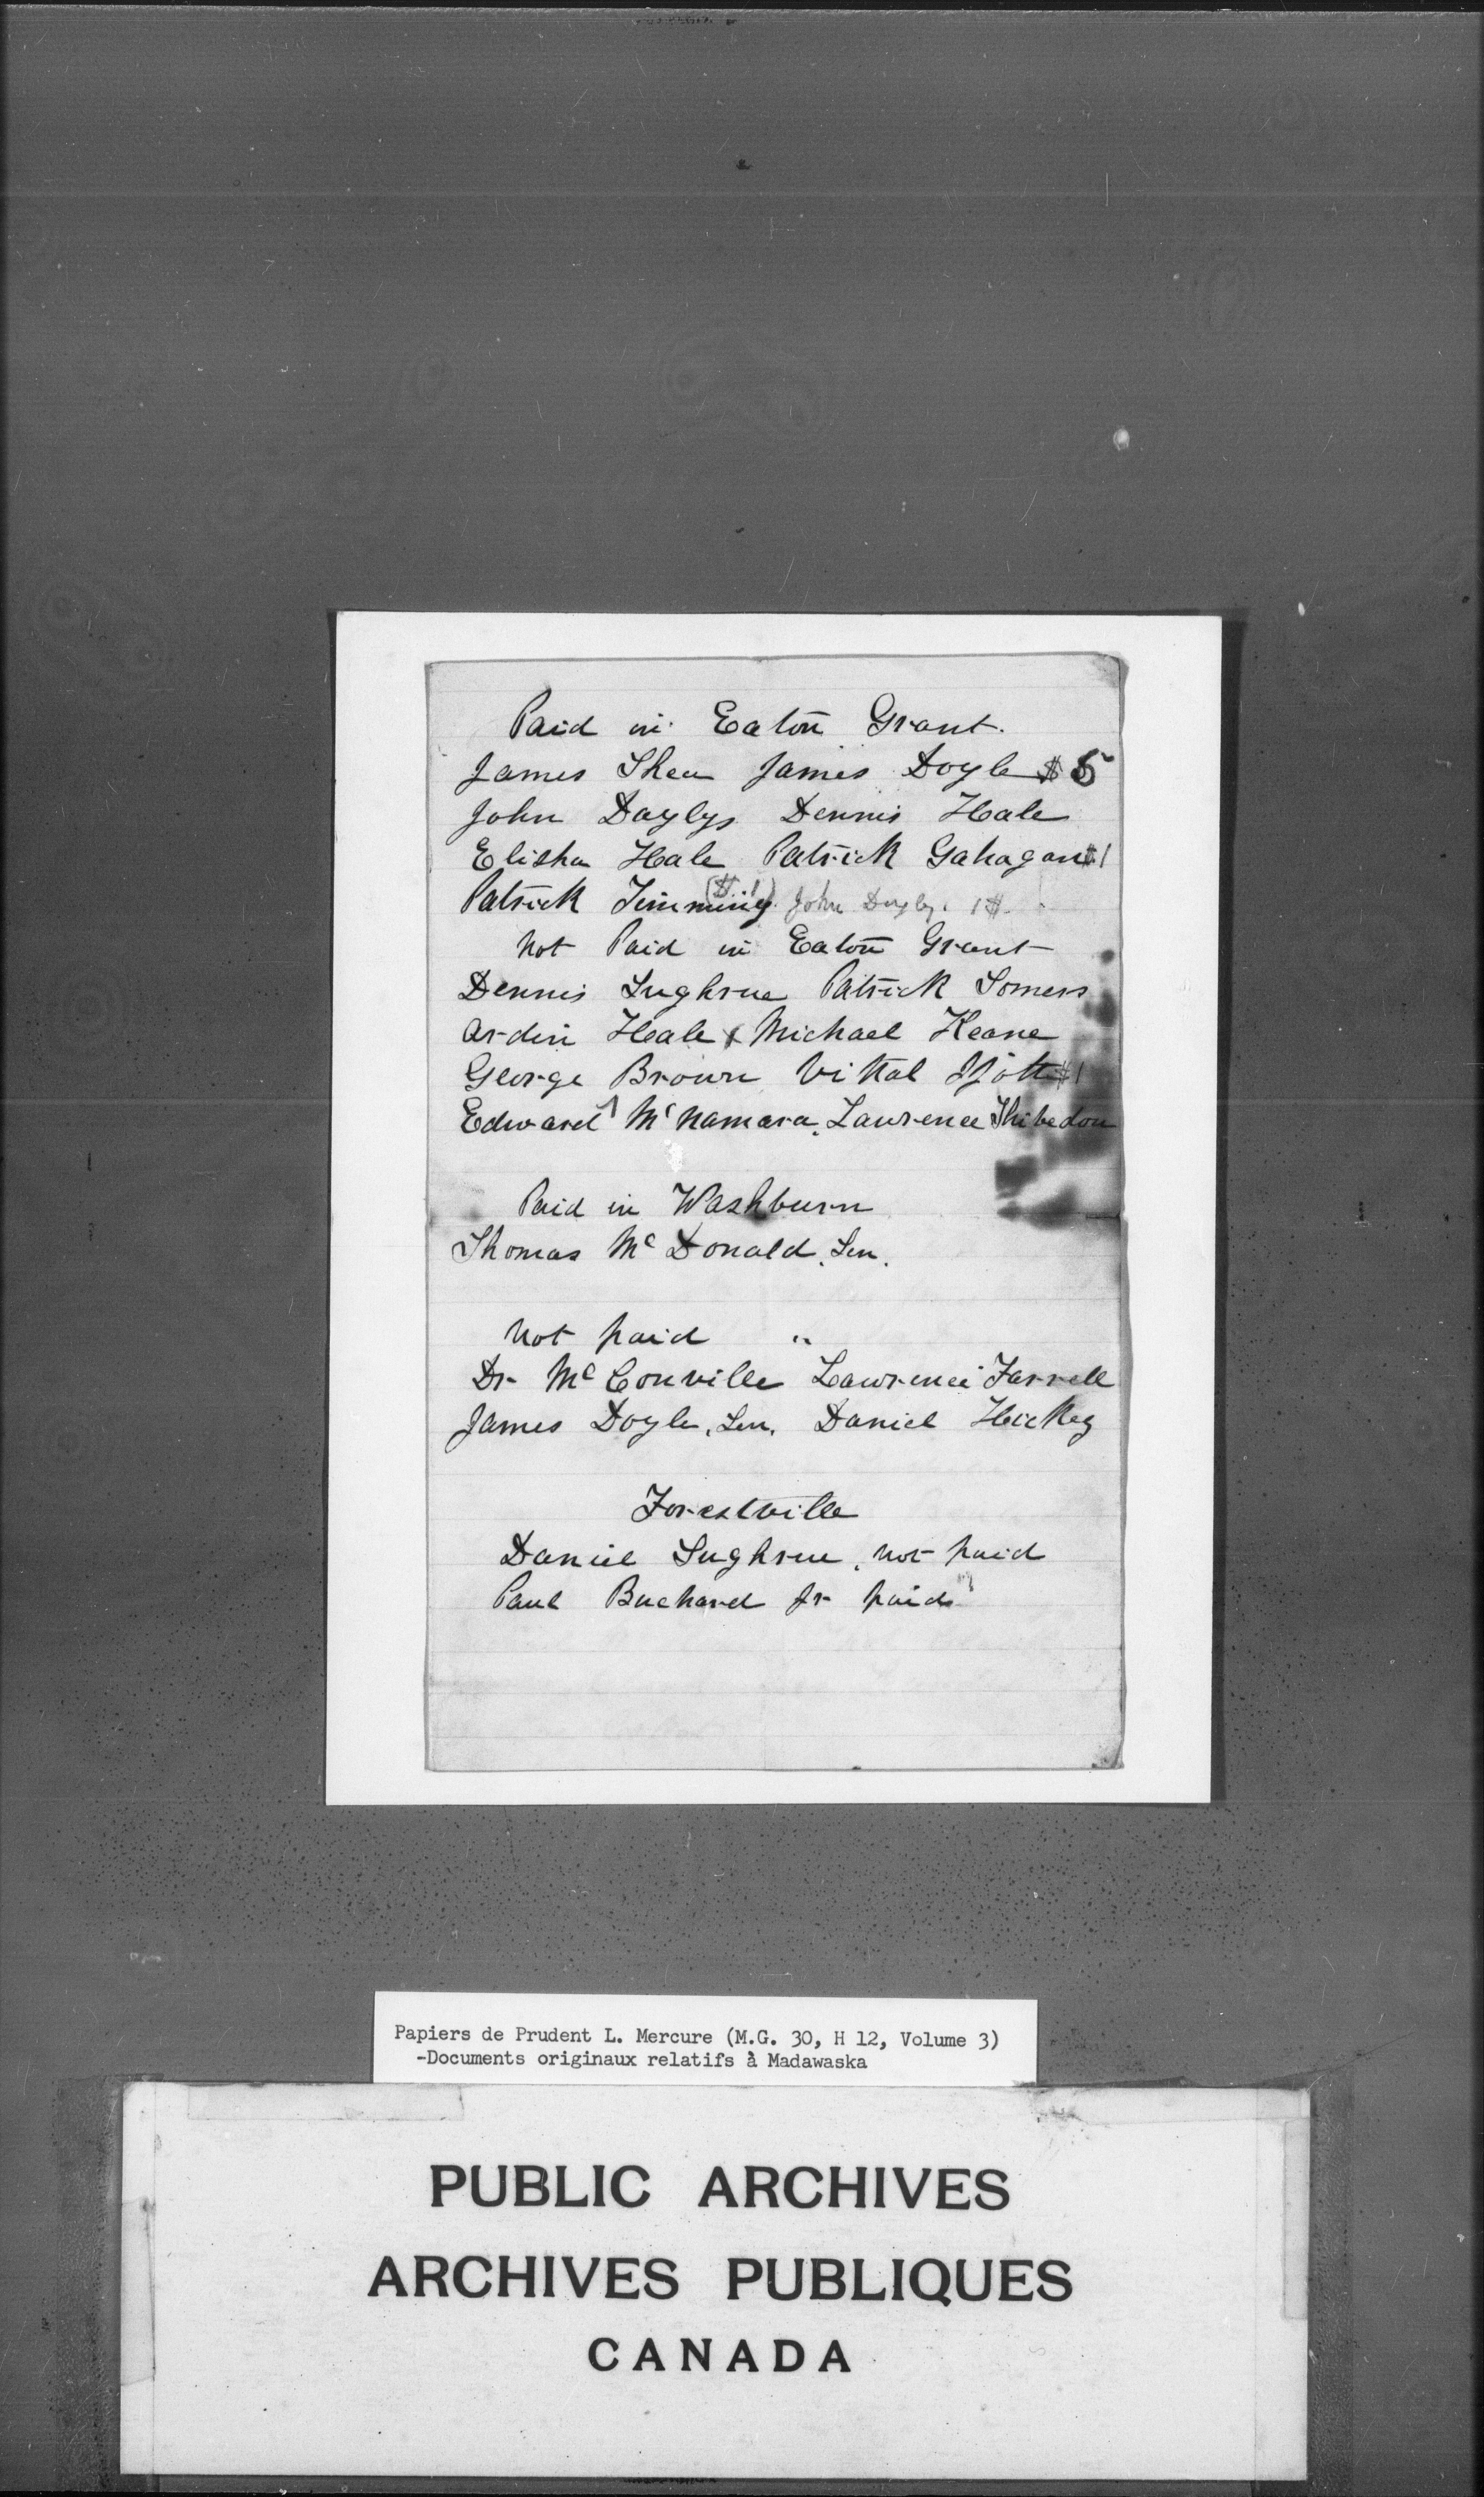 Paid in Eaton Grant.
James Shea James Doyle $5
John Doyly, Dennis Hale
Elisha Hale Patrick Gahagan $1
Patrick ($1) John Doyly. 1$
Not Paid in Eaton Grant
Dennis Sughrue Patrick Somers
Ardin Hale & Michael Keane
George Brown Vittal $1
Edward McNamara, Lawrence Thibedou
Paid in Washburn
Thomas McDonald, Sen.
Not paid "
Dr McConville Lawrence Farrell
James Doyle, Sen. Daniel Hickey
Forestville
Daniel Sughrue, not paid
Paul Buchard Jr paid
Papiers de Prudent L. Mercure (M.G. 30, H 12, Volume 3)
-Documents originaux relatifs à Madawaska
PUBLIC ARCHIVES
ARCHIVES PUBLIQUES
CANADA